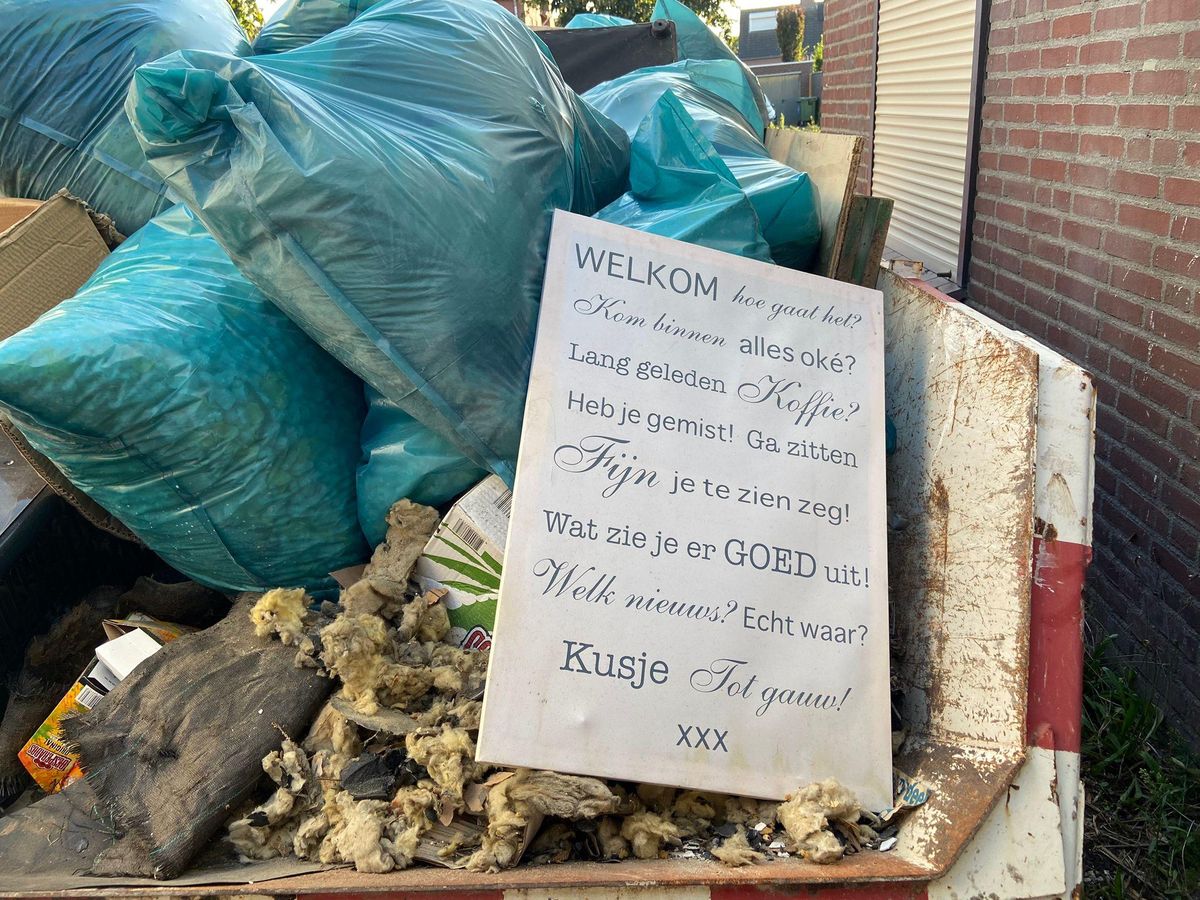 WELKOM hoe gaat het?
Kom binnen alles oké?
Lang geleden Koffie?
Heb je gemist! Ga zitten
Fijn je te zien zeg!
Wat zie je er GOED uit!
Welk nieuws? Echt waar?
Kusje Tot gauw!
xxx